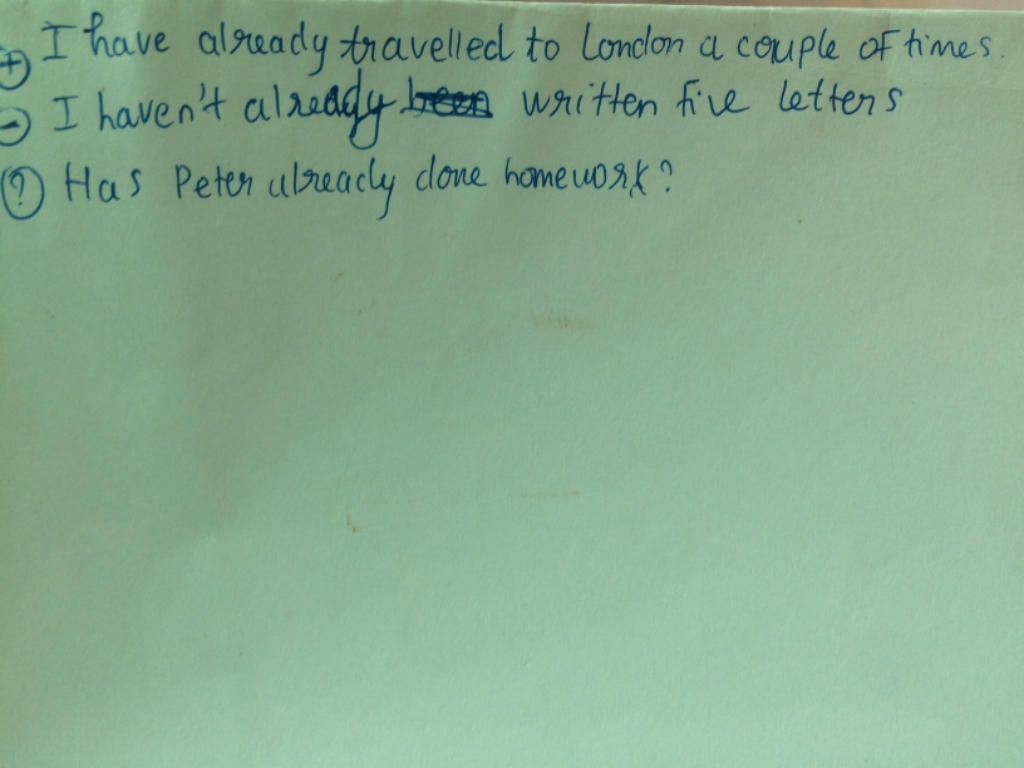 + I have already travelled to London a couple of times.
- I haven't already written five letters
? Has Peter already done homework?